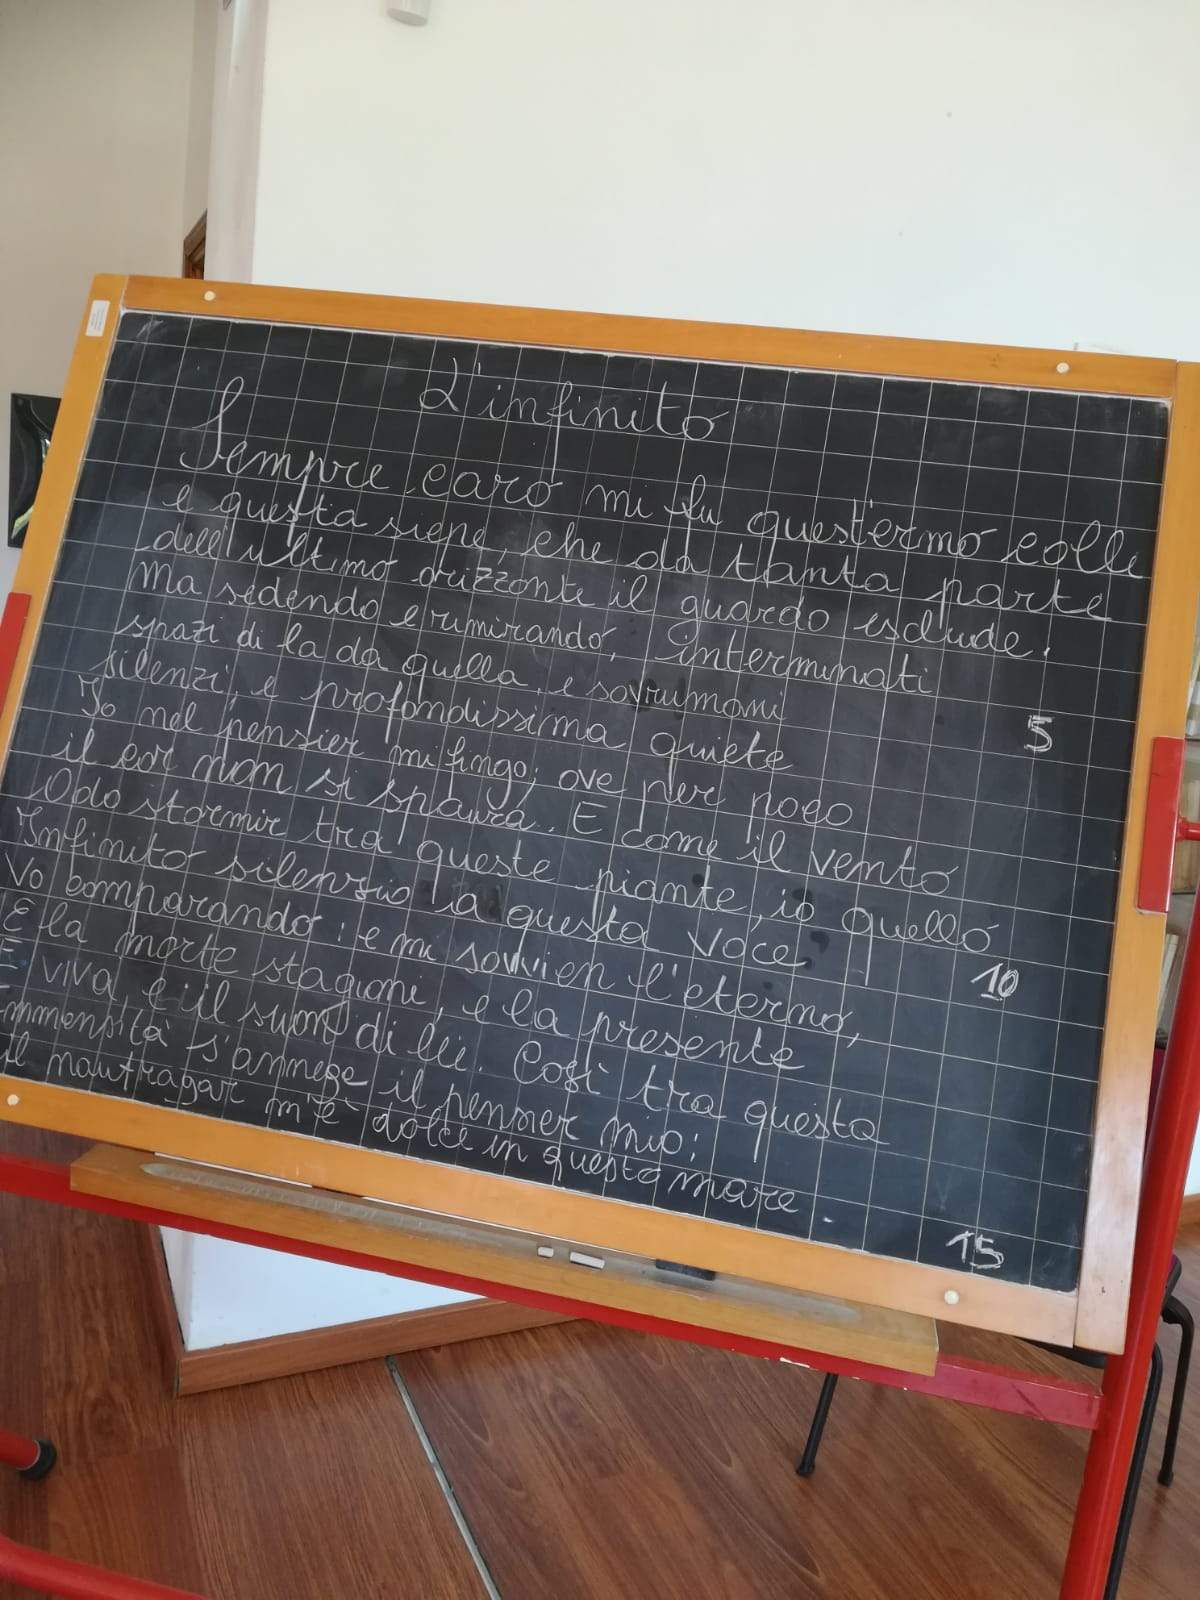 L'infinito
Sempre caro mi fu quest'ermo colle
e questa siepe, che da tanta parte
dell'ultimo orizzonte il guardo esclude.
Ma sedendo e rimirando, interminati
spazi di la da quella, e sovrumani
silenzi, e profondissima quiete
5
Io nel pensier mi fingo; ove per poco
il cor non si spaura. E come il vento
Odo stormir tra queste piante, io quello
Infinito silenzio a questa voce
Vo comparando: e mi sovvien l'eterno,
10
E la morte stagioni, e la presente
E viva, e il suon di lei. Così tra questa
Immensità s'annega il pensier mio:
il naufragar m'è dolce in questo mare.
15